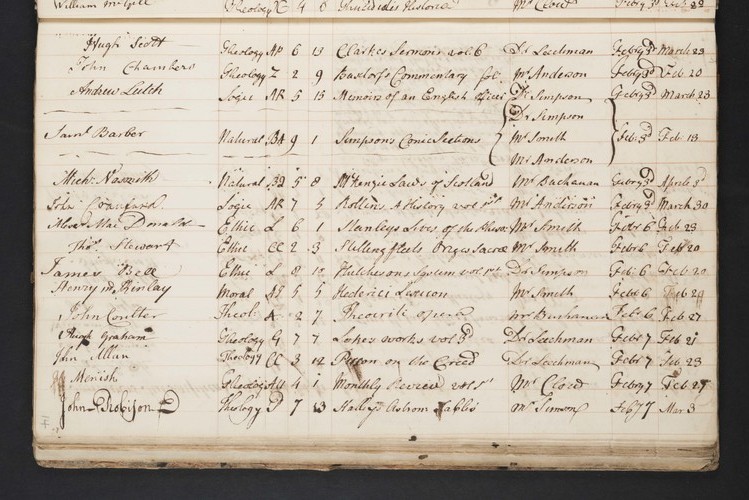 William McGill Theology C 4 8 Thucidides Historia Mr Clow Feb:ry 3d Feb 22
Hugh Scott Theology AP 6 13 Clarkes Sermons vol 6 Dr Leechman Feb:ry 3d March 23
John Chambers Theology Z 2 9 Commentary fol. Mr Anderson Feb:ry 3d Feb 20
Andrew Leitch Logic AR 5 15 Memoirs of an English officer Dr Simpson Feb:ry 3d March 23
Dr Simpson
Saml Barber Natural BA 9 1 Simpsons Conic Sections Mr Smith Feb: 3d Feb 18
Mr Anderson
Michl Nasmith Natural 5 8 McKenzie Laws of Scotland Mr Buchanan Feb:ry 3d April 3d
John Crawfurd Logic AR 7 5 Rollins A History vol 1st Mr Anderson Feb:ry 3d March 30
Alexr MacDonald Ethic L 6 1 Stanleys Lives of the Mr Smith Feb: 6 Feb 23
Thos Stewart Ethic CC 2 3 Stillingfleets Origes Sacræ Mr Smith Feb: 6 Feb 20
James Bell Ethic L 8 10 Hutchesons System vol 1st Dr Simpson Feb: 6 Feb 20
Henry McKinlay Moral 5 5 Hederici Lexicon Mr Smith Feb: 6 Feb 20
John Coulter Theol: A 2 7 Theocriti opera Mr Buchanan Feb: 6 Feb 27
Hugh Graham Theology G 7 7 Lokes works vol 3d Dr Leechman Feb: 7 Feb 21
John Allan Theology CC 3 12 Pearson on the Creed Dr Leechman Feb: 7 Feb 23
McNish Theology 4 1 Monthly Review vol 1st Mr Clow Feb:ry 7 Feb 27
John Robison Theology D 7 13 Halleys Astrom Tables Mr Simson Feb 7 Mar 3